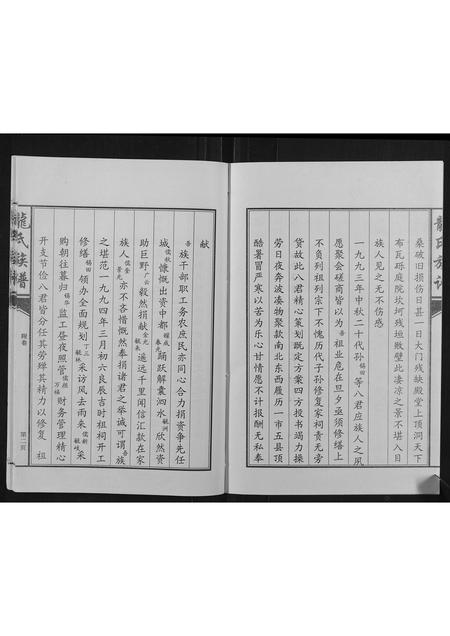 龍氏族谱
桑破旧损伤日甚一日大门残缺殿堂上顶洞天下
布瓦砾庭院坎坷残垣败壁此凄凉之景不堪入目
族人见之无不伤感
一九九三年中秋二十代孙锡田等八君应族人之夙
愿聚会磋商皆以为吾祖业危在旦夕亟须修缮上
不负列祖列宗下不愧历代子孙修复家祠责无旁
贷故此八君精心策划既定方案四方投书竭力操
劳日夜奔波凑物聚款南北东西履历 市五县顶
酷暑冒严寒以苦为乐心甘情愿不计报酬无私奉
献
吾族干部职工务农庶民亦同心合力捐资争先任
城 慷慨出资中都 踊跃解囊泗水 欣然资
助巨野广云毅然捐献金光 遥远千里闲信汇款在家
族人儒奎景光亦不吝惜慨然奉捐诸君之举诚可谓吾族
之堪范一九九四年三月初六良辰吉时祖祠开工
修缮锡田领办全面规划丁三 采访风去雨来 采
购朝往暮归锡华监工昼夜照管 万福财务管理精心
开支节俭八君皆分任其劳殚其精力以修复 祖
龍氏族谱
附卷
第二页